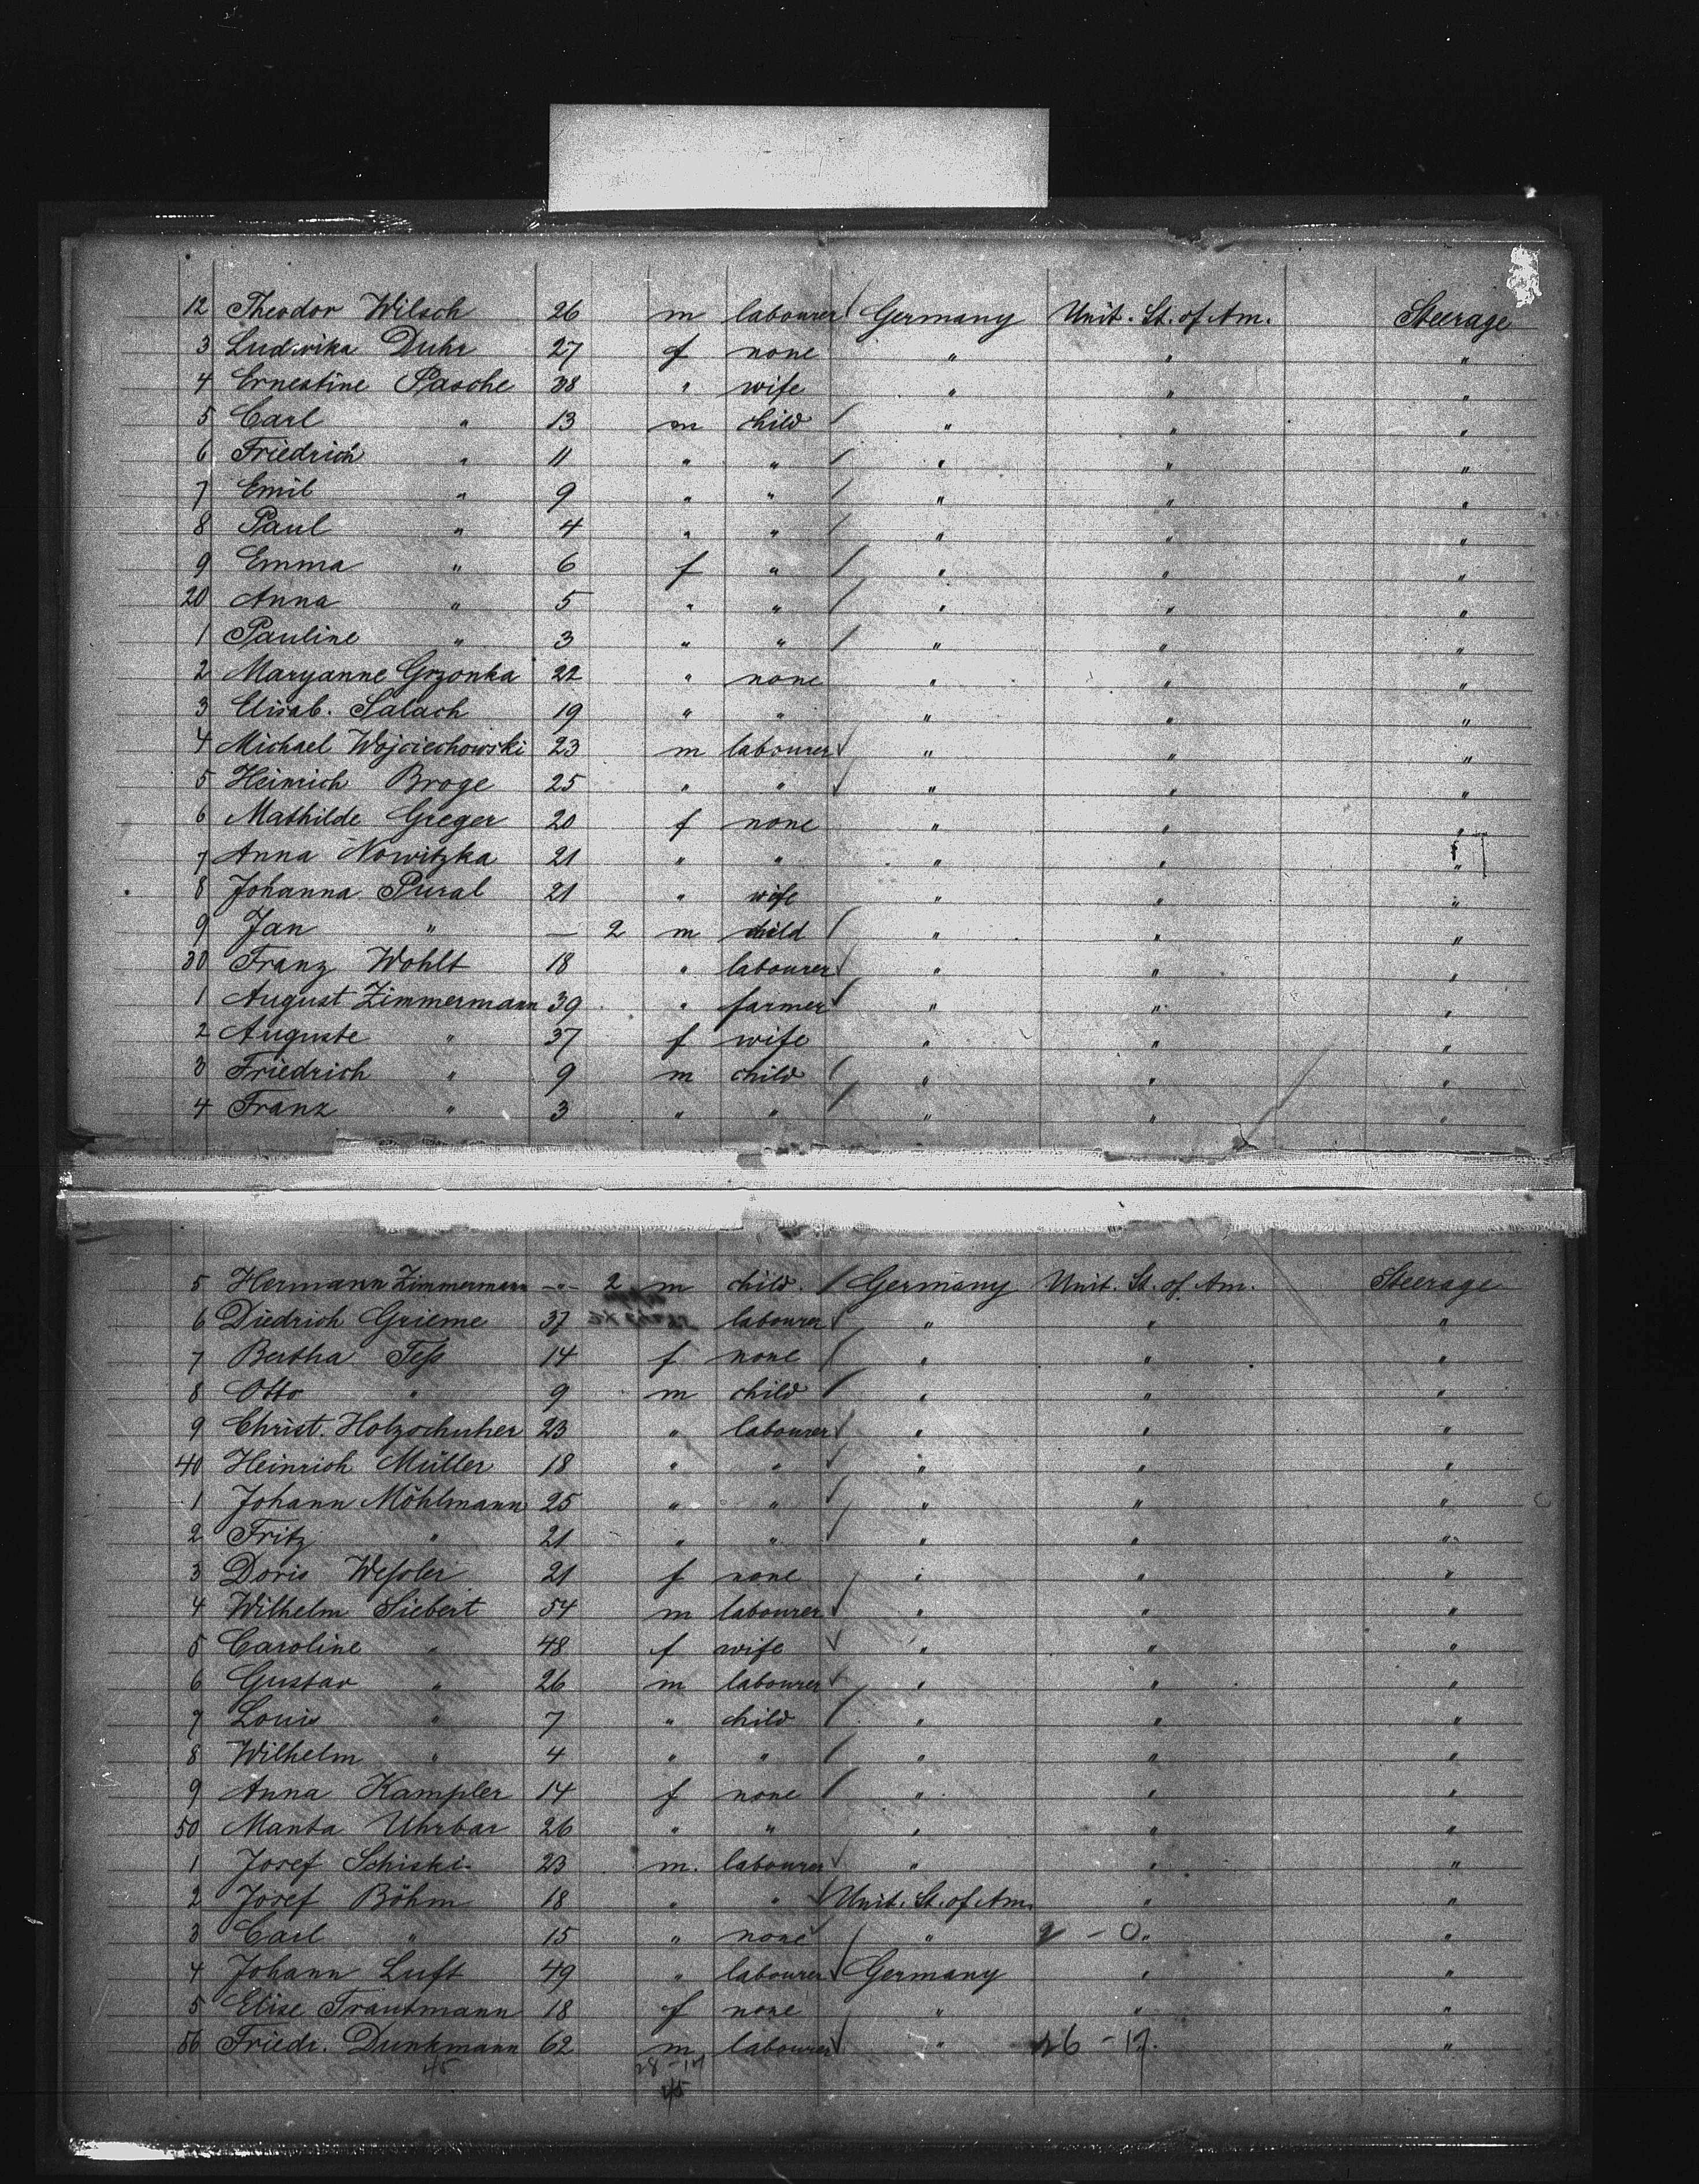 12 Theodor Wilsch 26 m labourer Germany Unit. St. of Am. Steerage
3 Ludwika Duhr 27 f none " " "
4 Ernestine Pasche 38 " wife " " "
5 Carl " 13 m child " " "
6 Friedrich " 11 " " " " "
7 Emil " 9 " " " " "
8 Paul " 4 " " " " "
9 Emma " 6 f " " " "
20 Anna " 5 " " " " "
1 Pauline " 3 " " " " "
2 Maryanne Grzonka 22 " none " " "
3 Elisab. Salach 19 " " " " "
4 Michael Wojciechowski 23 m labourer " " "
5 Heinrich Broge 25 " " " " "
6 Mathilde Greger 20 f none " " "
7 Anna Nowitzka 21 " " " " "
8 Johanna Pural 21 " wife " " "
9 Jan " — 2 m child " " "
30 Franz Wohlt 18 " labourer " " "
1 August Zimmermann 39 " farmer " " "
2 Auguste " 37 f wife " " "
3 Friedrich " 9 m child " " "
4 Franz " 3 " " " " "
5 Hermann Zimmermann -"- 2 m child. Germany Unit. St. of Am. Steerage
6 Diedrich Grieme 37 labourer " " "
7 Bertha Teſs 14 f none " " "
8 Otto " 9 m child " " "
9 Christ. Holzschuher 23 " labourer " " "
40 Heinrich Müller 18 " " " " "
1 Johann Möhlmann 25 " " " " "
2 Fritz " 21 " " " " "
3 Doris Weſsler 21 f none " " "
4 Wilhelm Siebert 54 m labourer " " "
5 Caroline " 48 f wife " " "
6 Gustav " 26 m labourer " " "
7 Louis " 7 " child " " "
8 Wilhelm " 4 " " " " "
9 Anna Kampler 14 f none " " "
50 Manta Uhrbar 26 " " " " "
1 Josef Schiski 23 m. labourer " " "
2 Josef Böhm 18 " " Unit. St. of Am. " "
3 Carl " 15 " none " 2 - 0 " "
4 Johann Luft 49 " labourer Germany " "
5 Elise Trautmann 18 f none " " "
56 Friedr. Dunkmann 62 m labourer " 26 - 17. "
45 28 - 17
45